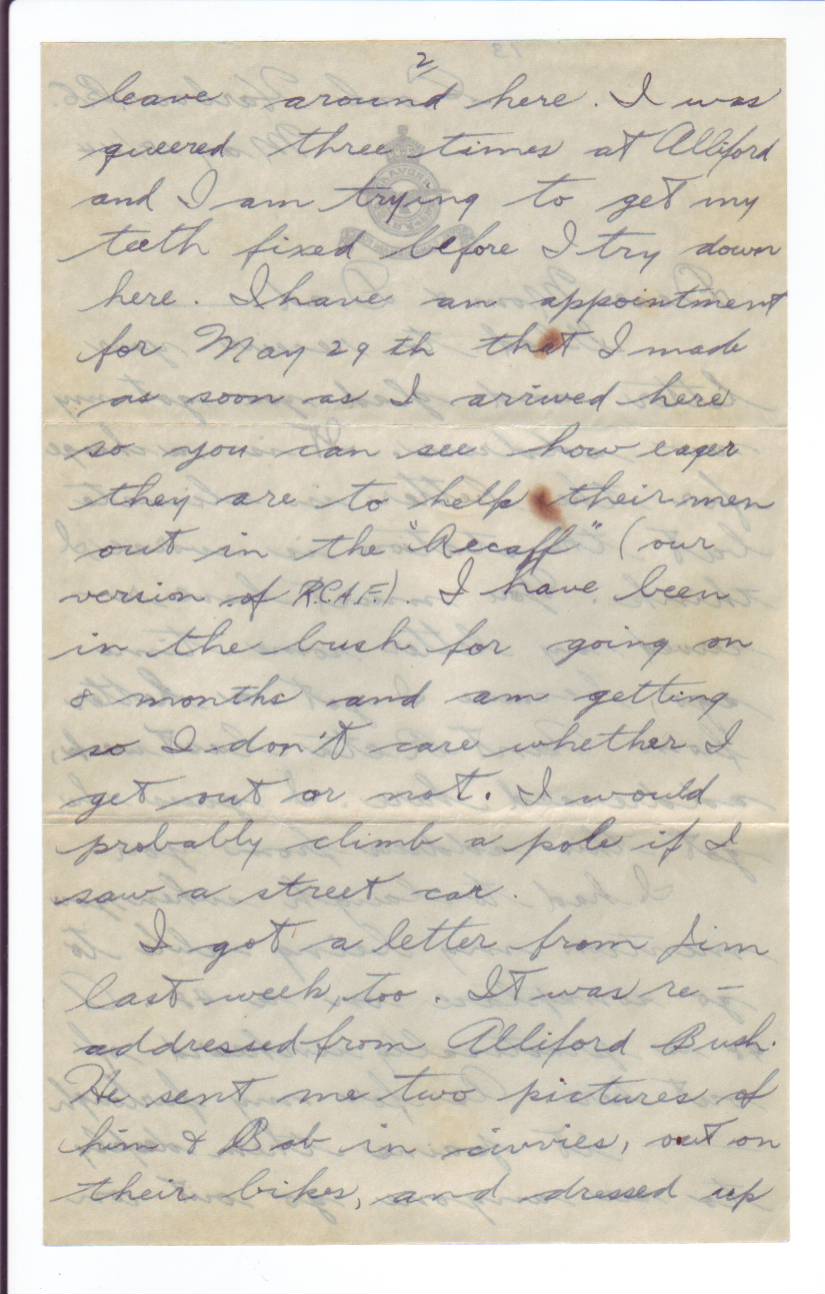 2
leave around here. I was
queered three times at Alliford
and I am trying to get my
teeth fixed before I try down
here. I have an appointment
for May 29th that I made
as soon as I arrived here
so you can see how eager
they are to help their men
out in the "Recaff" (our
version of R.C.A.F.). I have been
in the bush for going on
8 months and am getting
so I don't care whether I
get out or not. I would
probably climb a pole if I
saw a street car.
I got a letter from Jim
last week, too. It was re-
addressed from Alliford Bush.
He sent me two pictures of
him & Bob in civvies, out on
their bikes, and dressed up